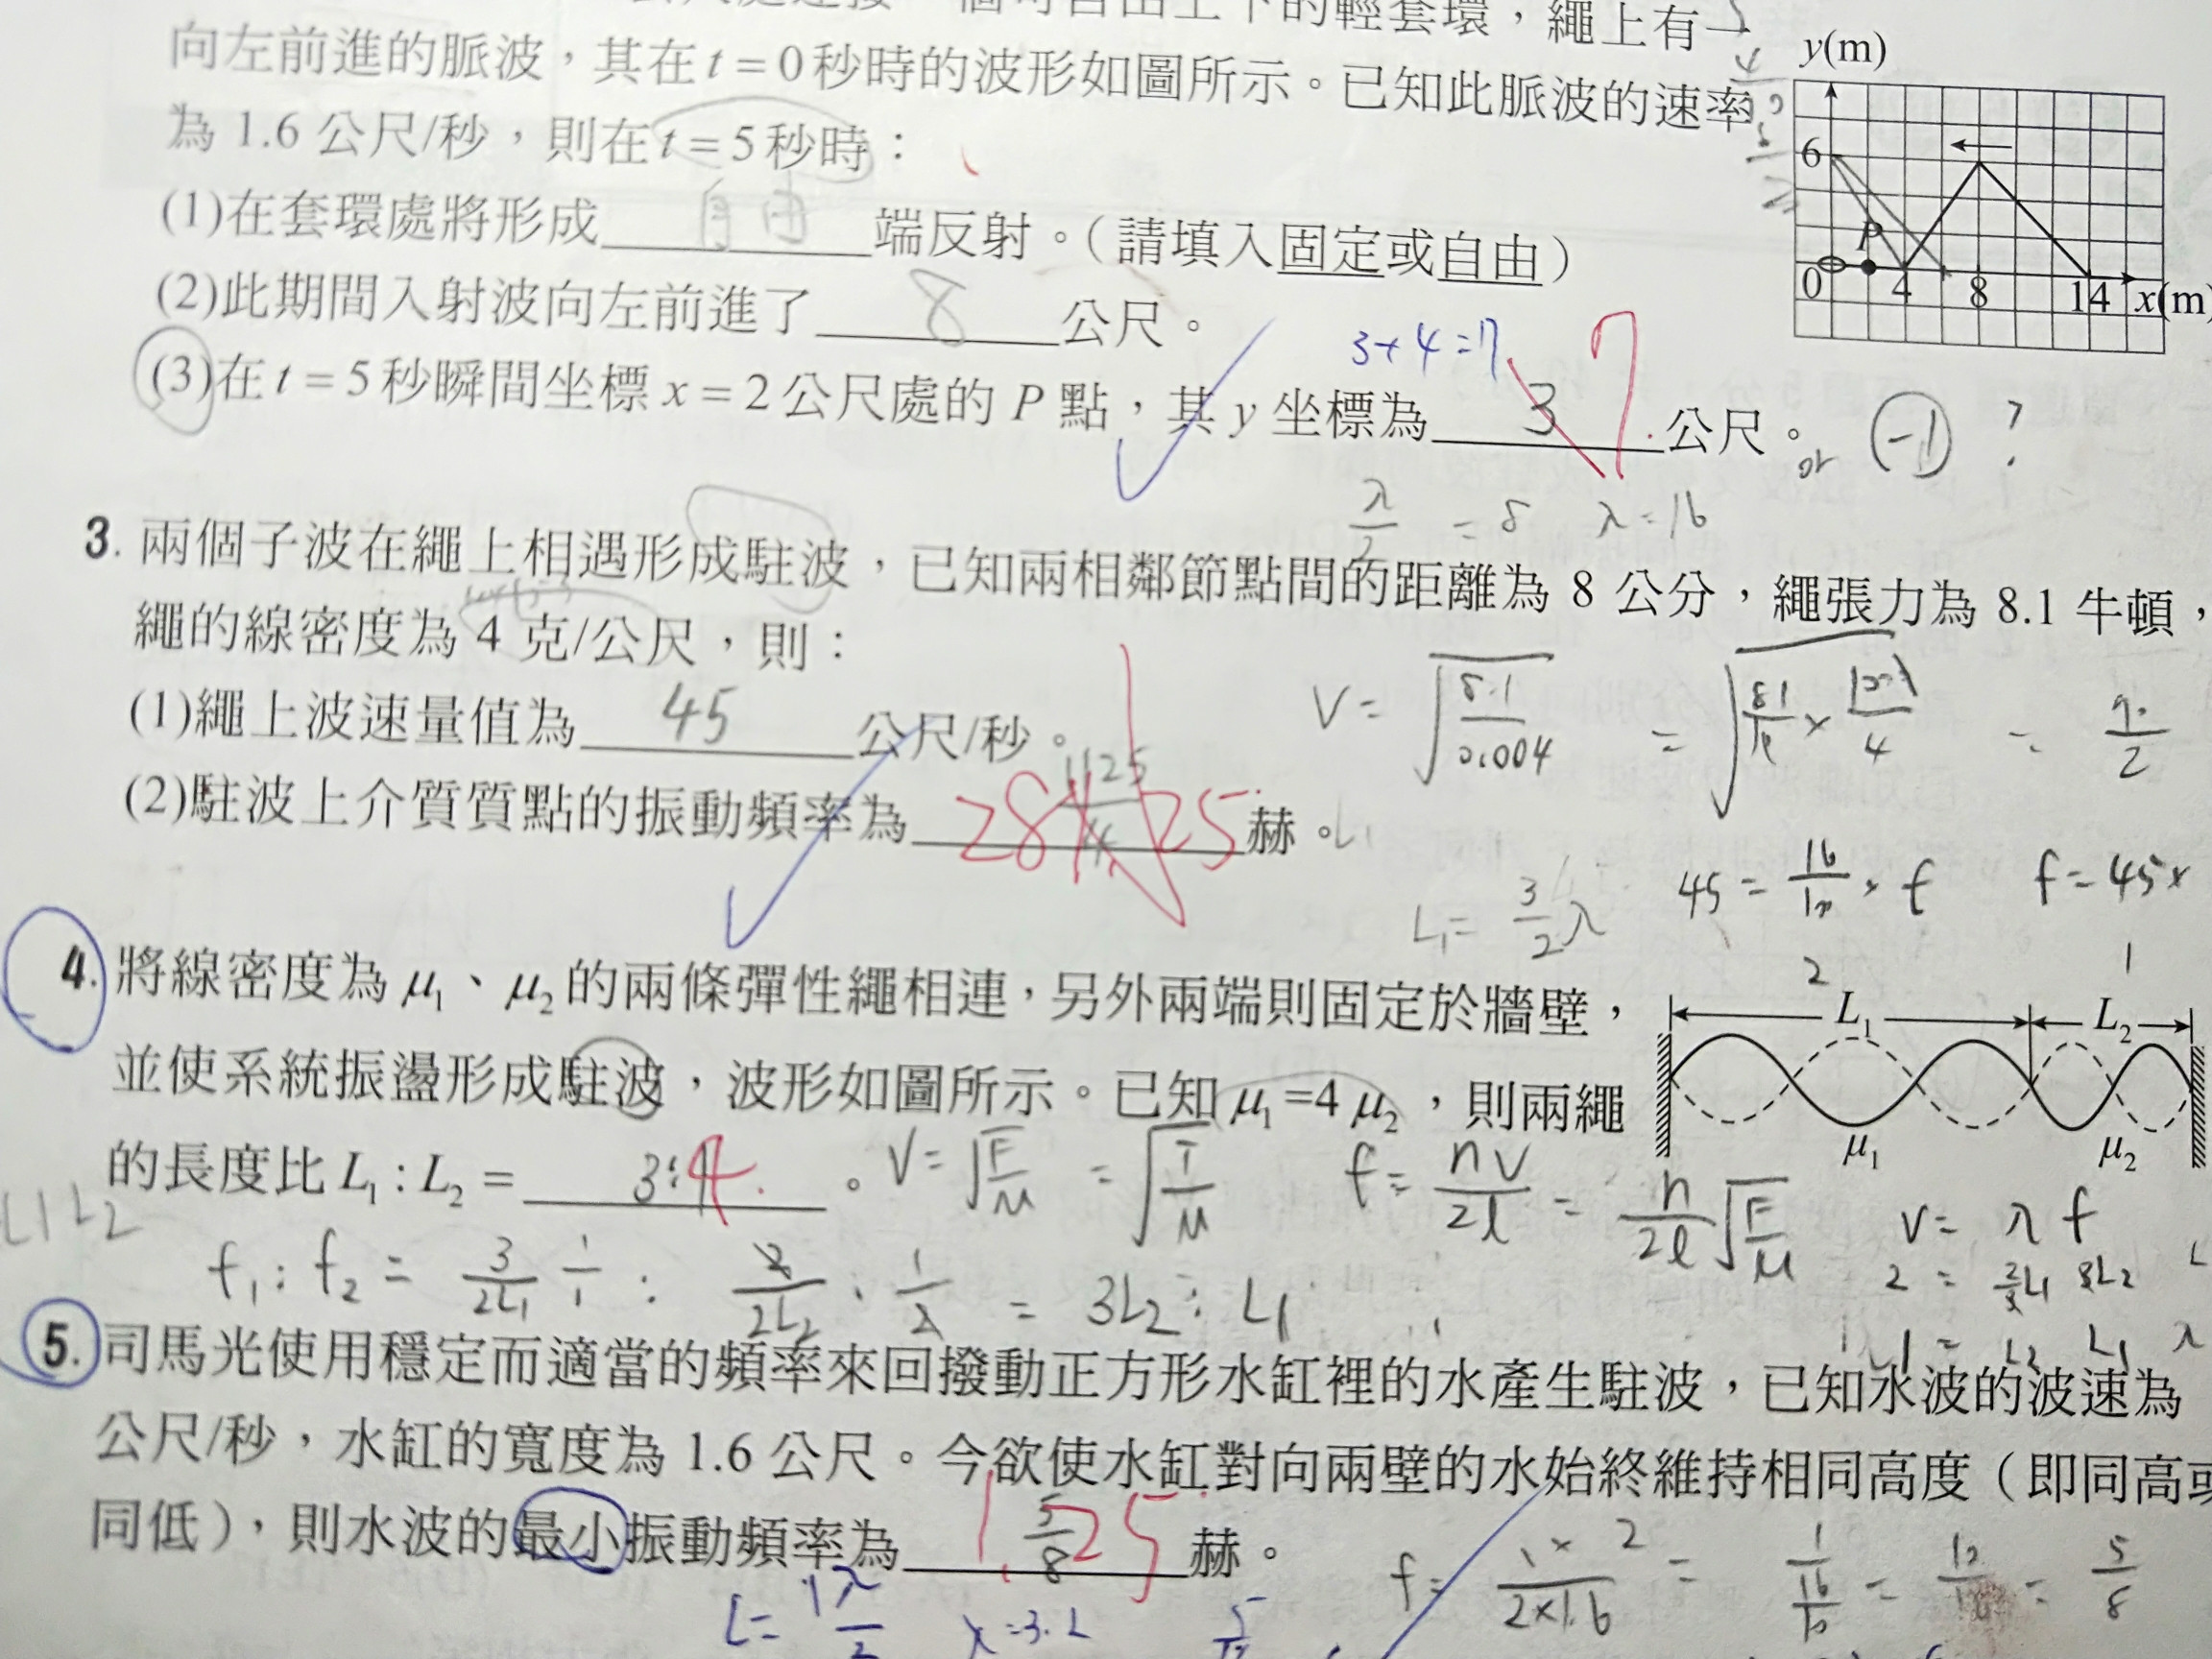 的輕套環，繩上有一
向左前進的脈波，其在 t = 0 秒時的波形如圖所示。已知此脈波的速率
為 1.6 公尺/秒，則在 t = 5 秒時：
(1)在套環處將形成 自由 端反射。（請填入固定或自由）
(2)此期間入射波向左前進了 8 公尺。
3+4=7
(3)在 t = 5 秒瞬間坐標 x = 2 公尺處的 P 點，其 y 坐標為 3 7 公尺。
or -1 ?
y(m)
6
P
0 4 8 14 x(m)
λ/2 = 8 λ=16
3. 兩個子波在繩上相遇形成駐波，已知兩相鄰節點間的距離為 8 公分，繩張力為 8.1 牛頓，
繩的線密度為 4 克/公尺，則：
(1)繩上波速量值為 45 公尺/秒。
V = √8.1/0.004 =
(2)駐波上介質質點的振動頻率為 1125/4 281.25 赫。
45 = 16/100 × f f = 45×
L1 = 3/2 λ
4. 將線密度為 μ1、μ2 的兩條彈性繩相連，另外兩端則固定於牆壁，
並使系統振盪形成駐波，波形如圖所示。已知 μ1 =4 μ2，則兩繩
的長度比 L1 : L2 = 3:4 。
2 1
L1 L2
μ1 μ2
V = √F/μ = √T/μ f = nv/2l = n/2l √F/μ
V = λ f
L1 L2
f1 : f2 = 3/2L1 1/1 : 2/2L2 · 1/2 = 3L2 : L1
5. 司馬光使用穩定而適當的頻率來回撥動正方形水缸裡的水產生駐波，已知水波的波速為
公尺/秒，水缸的寬度為 1.6 公尺。今欲使水缸對向兩壁的水始終維持相同高度（即同高或
同低），則水波的最小振動頻率為 5/8 1.25 赫。
f = 1×2/2×1.6 = = 10/16 = 5/8